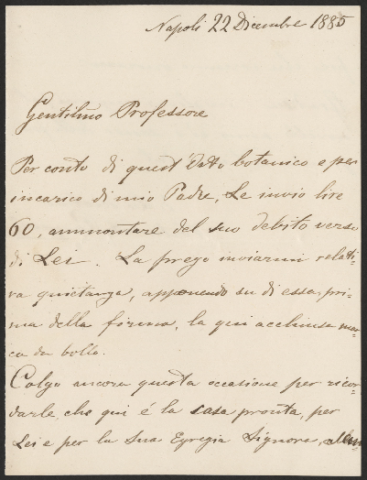 Napoli 22 Dicembre 1885
Gentilmo Professore
Per conto di quest'Orto botanico e per
incarico di mio Padre, Le invio lire
60, ammontare del suo debito verso
di Lei. La prego inviarmi relati-
va quietanza, apponendo su di essa, pri-
ma della firma, la qui acchiusa mar-
ca da bollo.
Colgo ancora questa occasione per ricor-
darle che qui é la casa pronta, per
Lei e per la Sua Egregia Signora,